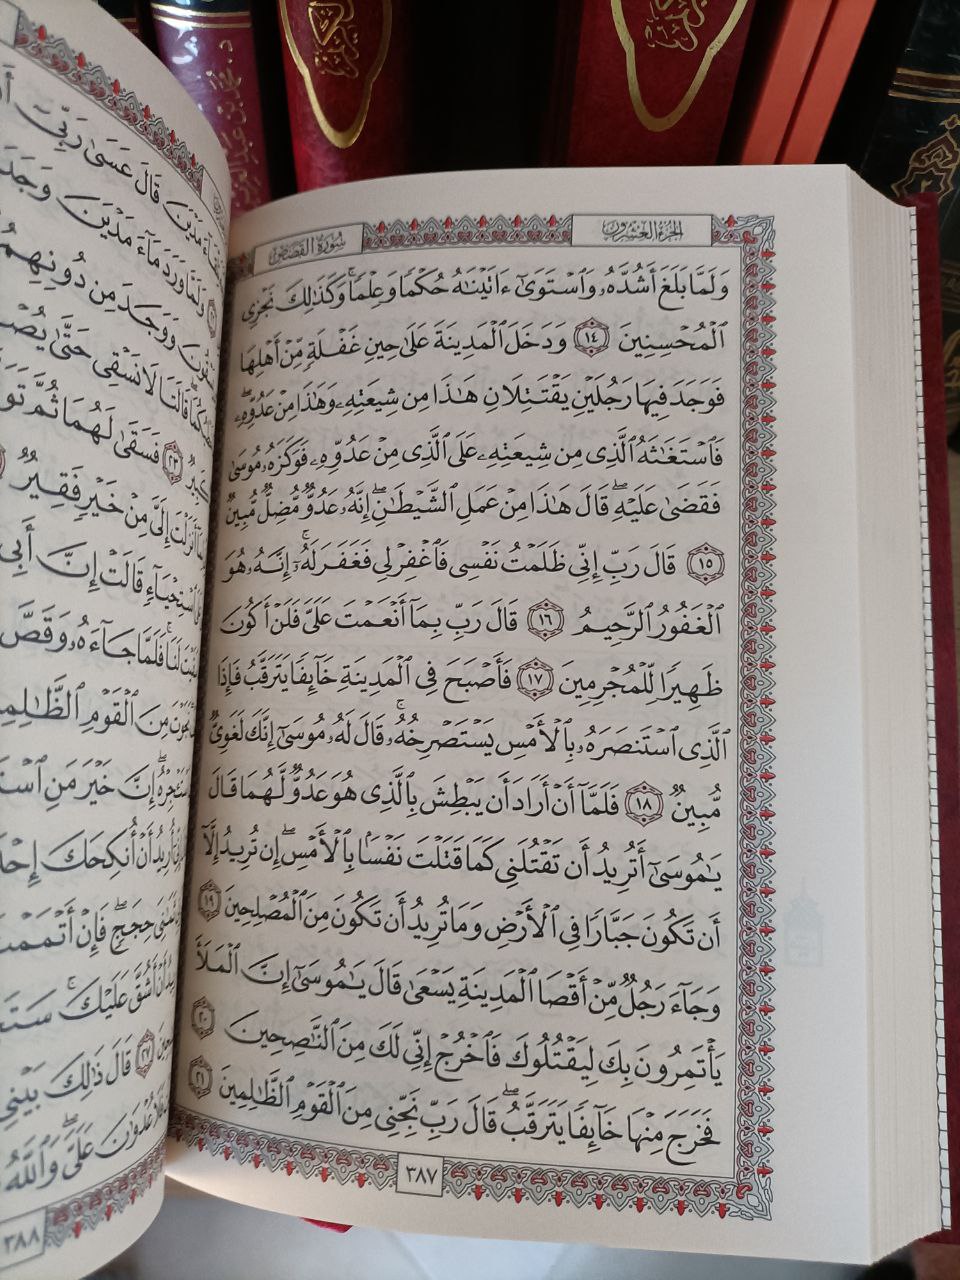 الجزء العشرون
سورة القصص
وَلَمَّا بَلَغَ أَشُدَّهُۥ وَٱسۡتَوَىٰٓ ءَاتَيۡنَٰهُ حُكۡمٗا وَعِلۡمٗاۚ وَكَذَٰلِكَ نَجۡزِي
ٱلۡمُحۡسِنِينَ ١٤ وَدَخَلَ ٱلۡمَدِينَةَ عَلَىٰ حِينِ غَفۡلَةٖ مِّنۡ أَهۡلِهَا
فَوَجَدَ فِيهَا رَجُلَيۡنِ يَقۡتَتِلَانِ هَٰذَا مِن شِيعَتِهِۦ وَهَٰذَا مِنۡ عَدُوِّهِۦۖ
فَٱسۡتَغَٰثَهُ ٱلَّذِي مِن شِيعَتِهِۦ عَلَى ٱلَّذِي مِنۡ عَدُوِّهِۦ فَوَكَزَهُۥ مُوسَىٰ
فَقَضَىٰ عَلَيۡهِۖ قَالَ هَٰذَا مِنۡ عَمَلِ ٱلشَّيۡطَٰنِۖ إِنَّهُۥ عَدُوّٞ مُّضِلّٞ مُّبِينٞ
١٥ قَالَ رَبِّ إِنِّي ظَلَمۡتُ نَفۡسِي فَٱغۡفِرۡ لِي فَغَفَرَ لَهُۥٓۚ إِنَّهُۥ هُوَ
ٱلۡغَفُورُ ٱلرَّحِيمُ ١٦ قَالَ رَبِّ بِمَآ أَنۡعَمۡتَ عَلَيَّ فَلَنۡ أَكُونَ
ظَهِيرٗا لِّلۡمُجۡرِمِينَ ١٧ فَأَصۡبَحَ فِي ٱلۡمَدِينَةِ خَآئِفٗا يَتَرَقَّبُ فَإِذَا
ٱلَّذِي ٱسۡتَنصَرَهُۥ بِٱلۡأَمۡسِ يَسۡتَصۡرِخُهُۥۚ قَالَ لَهُۥ مُوسَىٰٓ إِنَّكَ لَغَوِيّٞ
مُّبِينٞ ١٨ فَلَمَّآ أَنۡ أَرَادَ أَن يَبۡطِشَ بِٱلَّذِي هُوَ عَدُوّٞ لَّهُمَا قَالَ
يَٰمُوسَىٰٓ أَتُرِيدُ أَن تَقۡتُلَنِي كَمَا قَتَلۡتَ نَفۡسَۢا بِٱلۡأَمۡسِۖ إِن تُرِيدُ إِلَّآ
أَن تَكُونَ جَبَّارٗا فِي ٱلۡأَرۡضِ وَمَا تُرِيدُ أَن تَكُونَ مِنَ ٱلۡمُصۡلِحِينَ ١٩
وَجَآءَ رَجُلٞ مِّنۡ أَقۡصَا ٱلۡمَدِينَةِ يَسۡعَىٰ قَالَ يَٰمُوسَىٰٓ إِنَّ ٱلۡمَلَأَ
يَأۡتَمِرُونَ بِكَ لِيَقۡتُلُوكَ فَٱخۡرُجۡ إِنِّي لَكَ مِنَ ٱلنَّٰصِحِينَ ٢٠
فَخَرَجَ مِنۡهَا خَآئِفٗا يَتَرَقَّبُۖ قَالَ رَبِّ نَجِّنِي مِنَ ٱلۡقَوۡمِ ٱلظَّٰلِمِينَ ٢١
٣٨٧
مَدۡيَنَ قَالَ عَسَىٰ رَبِّيٓ
وَلَمَّا وَرَدَ مَآءَ مَدۡيَنَ وَجَدَ
وَوَجَدَ مِن دُونِهِمُ
قَالَتَا لَا نَسۡقِي حَتَّىٰ
٢٣ فَسَقَىٰ لَهُمَا ثُمَّ
أَنزَلۡتَ إِلَيَّ مِنۡ خَيۡرٖ فَقِيرٞ
ٱسۡتِحۡيَآءٖ قَالَتۡ إِنَّ أَبِي
لَنَاۚ فَلَمَّا جَآءَهُۥ وَقَصَّ
مِنَ ٱلۡقَوۡمِ
إِنَّ خَيۡرَ مَنِ
أُرِيدُ أَنۡ أُنكِحَكَ
حِجَجٖۖ فَإِنۡ أَتۡمَمۡتَ
أَنۡ أَشُقَّ عَلَيۡكَۚ
٢٧ قَالَ ذَٰلِكَ بَيۡنِي
عُدۡوَٰنَ عَلَيَّۖ وَٱللَّهُ
٣٨٨